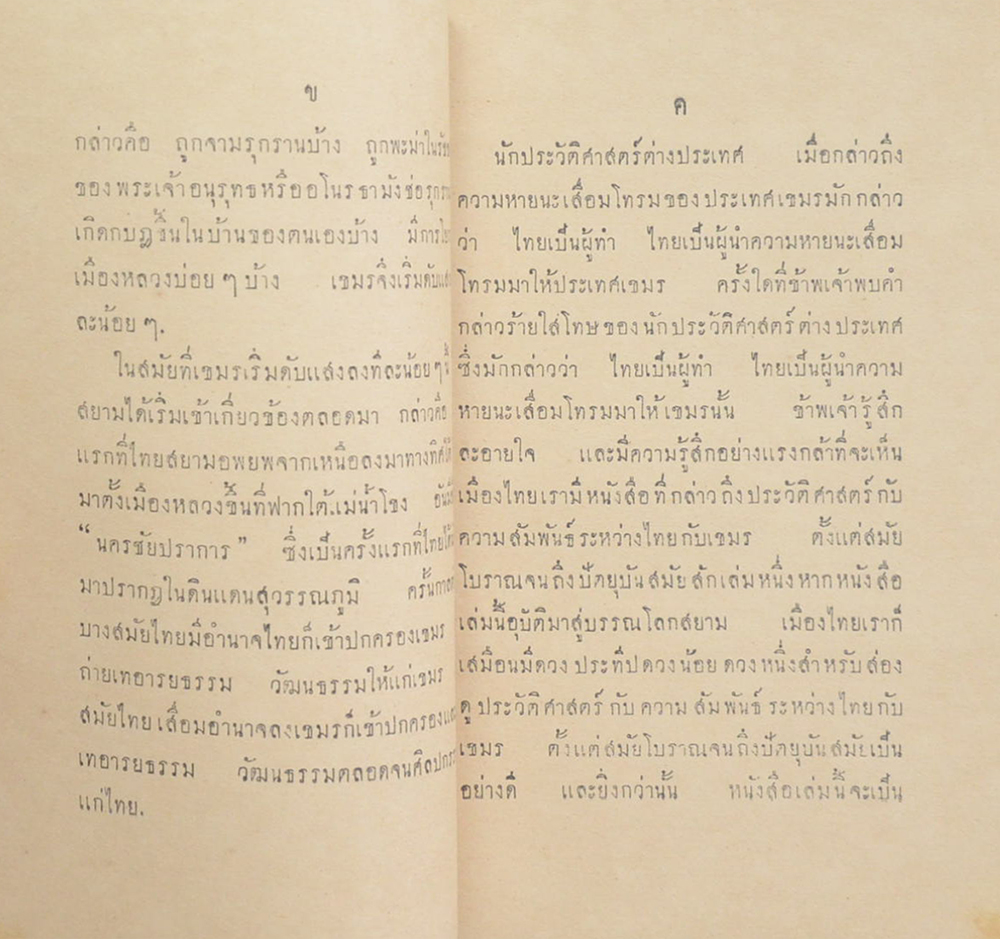 ข
กล่าวคือ ถูกจามรุกรานบ้าง ถูกพะม่าใน
ของพระเจ้าอนุรุทธหรืออโนรธามังช่อ
เกิดกบฏขึ้นในบ้านของตนเองบ้าง มีการ
เมืองหลวงบ่อย ๆ บ้าง เขมรจึงเริ่มดับ
ละน้อย ๆ.
ในสมัยที่เขมรเริ่มดับแสงลงทีละน้อย ๆ
สยามได้เริ่มเข้าเกี่ยวข้องตลอดมา กล่าวคือ
แรกที่ไทยสยามอพยพจากเหนือลงมาทางทิศ
มาตั้งเมืองหลวงขึ้นที่ฟากใต้แม่น้ำโขง
“นครชัยปราการ” ซึ่งเป็นครั้งแรกที่ไทย
มาปรากฏในดินแดนสุวรรณภูมิ ครั้น
บางสมัยไทยมีอำนาจไทยก็เข้าปกครองเขมร
ถ่ายเทอารยธรรม วัฒนธรรมให้แก่เขมร
สมัยไทยเสื่อมอำนาจลงเขมรก็เข้าปกครอง
เทอารยธรรม วัฒนธรรมตลอดจน
แก่ไทย.
ค
นักประวัติศาสตร์ต่างประเทศ เมื่อกล่าวถึง
ความหายนะเสื่อมโทรมของประเทศเขมรมักกล่าว
ว่า ไทยเป็นผู้ทำ ไทยเป็นผู้นำความหายนะเสื่อม
โทรมมาให้ประเทศเขมร ครั้งใดที่ข้าพเจ้าพบคำ
กล่าวร้ายใส่โทษของนักประวัติศาสตร์ต่างประเทศ
ซึ่งมักกล่าวว่า ไทยเป็นผู้ทำ ไทยเป็นผู้นำความ
หายนะเสื่อมโทรมมาให้เขมรนั้น ข้าพเจ้ารู้สึก
ละอายใจ และมีความรู้สึกอย่างแรงกล้าที่จะเห็น
เมืองไทยเรามีหนังสือที่กล่าวถึงประวัติศาสตร์กับ
ความสัมพันธ์ระหว่างไทยกับเขมร ตั้งแต่สมัย
โบราณจนถึงปัตยุบันสมัยสักเล่มหนึ่งหากหนังสือ
เล่มนี้อุบัติมาสู่บรรณโลกสยาม เมืองไทยเราก็
เสมือนมีดวงประทีปดวงน้อยดวงหนึ่งสำหรับส่อง
ดูประวัติศาสตร์กับความสัมพันธ์ระหว่างไทยกับ
เขมร ตั้งแต่สมัยโบราณจนถึงปัตยุบันสมัยเป็น
อย่างดี และยิ่งกว่านั้น หนังสือเล่มนี้จะเป็น